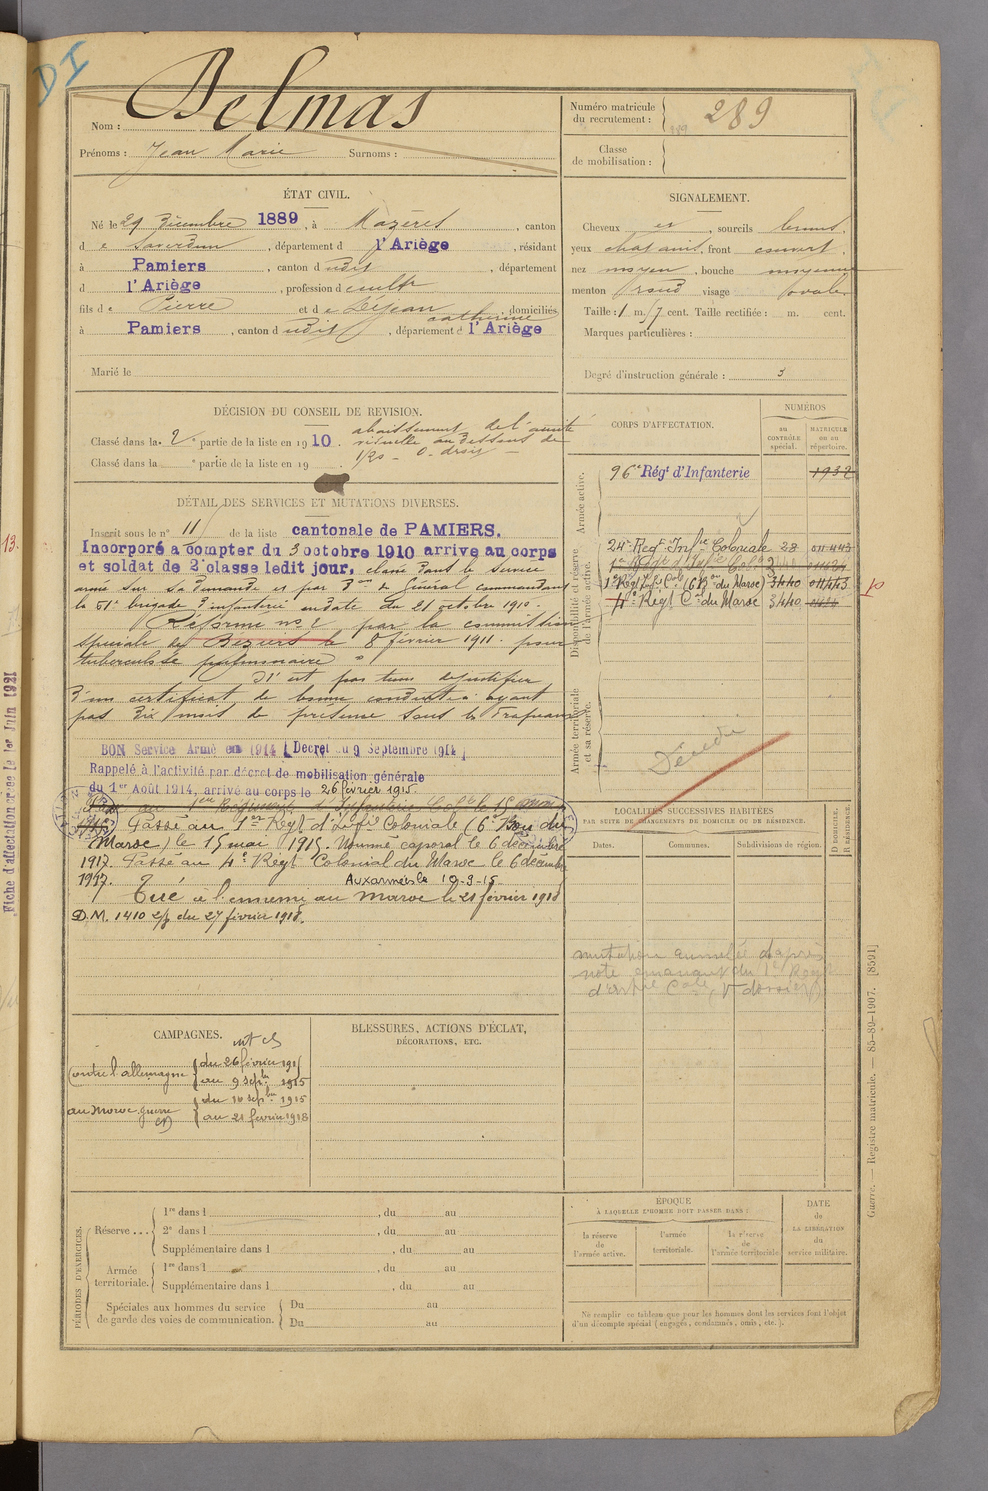 DI
Nom : Delmas
Prénoms : Jean Marie Surnoms :
Numéro matricule du recrutement : 289
Classe de mobilisation :
ÉTAT CIVIL.
Né le 29 Décembre 1889, à Mazères, canton
de Saverdun, département d l'Ariège, résidant
à Pamiers, canton d udit, département
d l'Ariège, profession d cultr
fils de Pierre et de Léjean catherine, domiciliés
à Pamiers, canton d udit, département d l'Ariège
Marié le
SIGNALEMENT.
Cheveux et, sourcils bruns,
yeux chatains, front couvert,
nez moyen, bouche moyenne
menton rond visage ovale.
Taille : 1 m. 57 cent. Taille rectifiée : m. cent.
Marques particulières :
Degré d'instruction générale : 3
DÉCISION DU CONSEIL DE REVISION.
Classé dans la 2e partie de la liste en 1910.
Classé dans la e partie de la liste en 19 .
abaissement de l'acuité
visuelle au dessous de
1/20 - O. droit -
DÉTAIL DES SERVICES ET MUTATIONS DIVERSES.
Inscrit sous le n° 115 de la liste cantonale de PAMIERS.
Incorporé à compter du 3 octobre 1910 arrivé au corps
et soldat de 2e classe ledit jour, classé dans le service
armé sur sa demande et par Don de Général commandant
la 61e brigade d'infanterie en date du 21 octobre 1910.
Réformé no 2 par la commission
spéciale de Béziers le 8 février 1911 pour
tuberculose pulmonaire
N'est pas tenu de justifier
d'un certificat de bonne conduite ayant
pas dix mois de présence sous les Drapeaux
BON Service Armé en 1914 (Décret du 9 Septembre 1914)
Rappelé à l'activité par décret de mobilisation générale
du 1er Août 1914, arrivé au corps le 26 février 1915.
Passé au 1er Régiment d'Infanterie Cole le 15
Passé au 1er Regt d'Infie Coloniale (6e Bon du
Maroc) le 15 mai 1915. Nommé caporal le 6 décembre
1917. Passé au 4e Regt Colonial du Maroc le 6 décembre
1917. Aux armées le 10-9-15
Tué à l'ennemi au Maroc le 21 février 1918
D.M. 1410 2/3 du 27 février 1918.
CORPS D'AFFECTATION.
NUMÉROS
au CONTRÔLE spécial.
MATRICULE ou au répertoire.
Armée active.
96e Régt d'Infanterie 1932
Disponibilité et réserve de l'armée active.
24e Regt Infie Coloniale 28 011443
1er Regt Infie Cole (6e Bon du Maroc) 3440 011443 10
4e Regt Cal du Maroc 3440
Armée territoriale et sa réserve.
Décédé
LOCALITÉS SUCCESSIVES HABITÉES
PAR SUITE DE CHANGEMENTS DE DOMICILE OU DE RÉSIDENCE.
Dates. Communes. Subdivisions de région. D DOMICILE. R RÉSIDENCE.
mutation annulée d'après
note émanant du 1er Regt
d'Infie Cole (V dossier)
CAMPAGNES.
Contre l'allemagne
du 26 février 1915
au 9 septbre 1915
au Maroc guerre
du 10 septbre 1915
au 21 février 1918
BLESSURES, ACTIONS D'ÉCLAT,
DÉCORATIONS, ETC.
PÉRIODES D'EXERCICES.
Réserve ...
1re dans l , du au
2e dans l , du au
Supplémentaire dans l , du au
Armée territoriale.
1re dans l , du au
Supplémentaire dans l , du au
Spéciales aux hommes du service de garde des voies de communication.
Du au
Du au
ÉPOQUE
À LAQUELLE L'HOMME DOIT PASSER DANS :
la réserve de l'armée active.
l'armée territoriale.
la réserve de l'armée territoriale
DATE de LA LIBÉRATION du service militaire.
Ne remplir ce tableau que pour les hommes dont les services font l'objet
d'un décompte spécial (engagés, condamnés, omis, etc.).
Guerre. — Registre matricule. — 85-89-1907. [8591]
13.
Fiche d'affectation créée le 1er Juin 1921